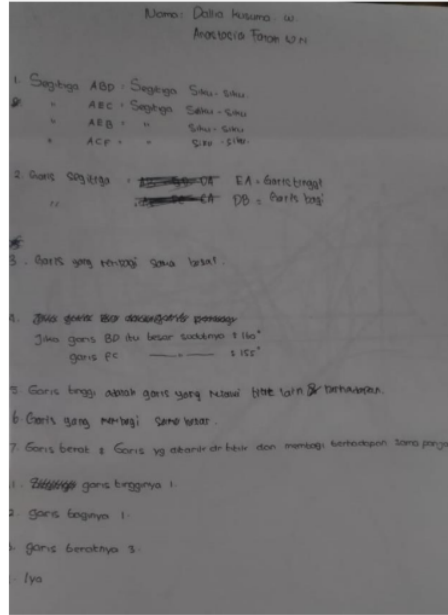 Nama: Dalia Kusuma. W.
Anastasia Fatah W.N
1. Segitiga ABD = Segitiga Siku-siku.
" ABC = Segitiga Siku-siku
" AEB = " Siku-siku
" ACF = " Siku-siku.
2. Garis Segitiga = EA = Garis tinggi
" DB = Garis bagi
3. Garis yang membagi sama besar.
4.
Jika garis BD itu besar sudutnya = 160°
garis FC = 155°
5. Garis tinggi adalah garis yang melawi titik lain & berhadapan.
6. Garis yang membagi sama besar.
7. Garis berat = Garis yg ditarik dr titik dan membagi berhadapan sama panja
1. garis tingginya 1.
2. garis baginya 1.
garis beratnya 3.
Iya